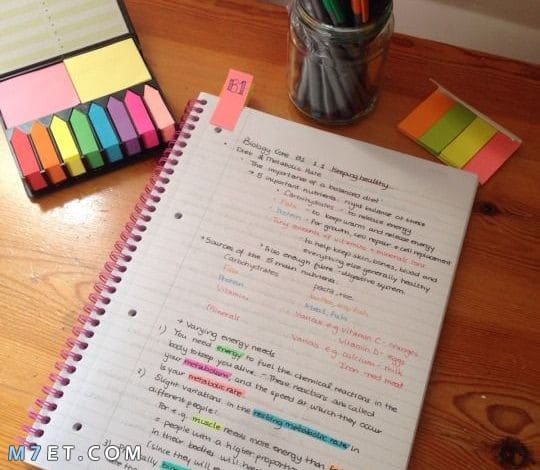 B1
Biology Core B1 1.1 Keeping healthy
• Diet & Metabolic Rate
• The importance of a balanced diet
→ 5 important nutrients: right balance of these
Carbohydrates - to release energy
Fats - to keep warm and release energy
Protein - for growth, cell repair + cell replacement
Tiny amounts of vitamins + minerals ions
- to help keep skin, bones, blood and
everything else generally healthy
* Also enough fibre - digestive system.
→ Sources of the 5 main nutrients:
Carbohydrates pasta, rice
Fats butter, oily fish
Protein Meat, fish
Vitamins Various e.g vitamin C - oranges
vitamin D - eggs
Minerals Various e.g. calcium - milk
Iron - red meat
→ Varying energy needs
1) You need energy to fuel the chemical reactions in the
body to keep you alive. These reactions are called
your metabolism, and the speed at which they occur
is your metabolic rate
2) Slight variations in the resting metabolic rate in
different people:
for e.g. muscle needs more energy than
= people with a higher proportion
in their bodies will
(since they will
3)
M7ET.COM